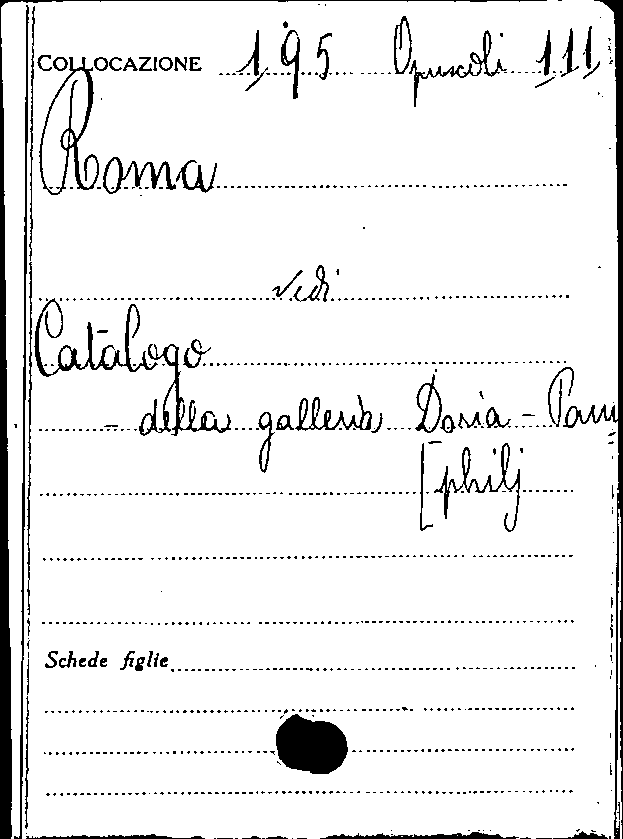 COLLOCAZIONE 195 Opuscoli 111
Roma
vedi
Catalogo
- della galleria Doria - Pam
[philj
Schede figlie